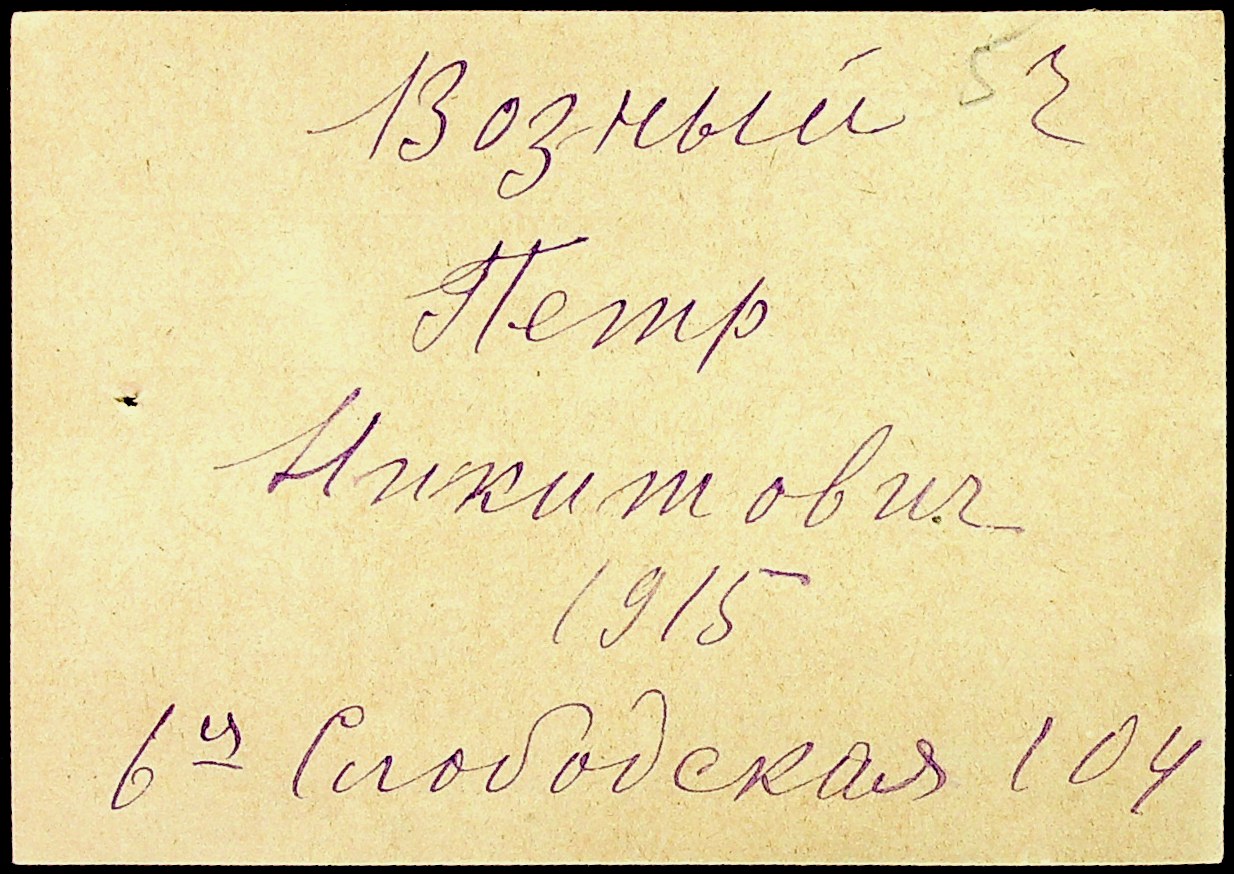 Возный 5 ч
Петр
Никитович
1915
6я Слободская 104